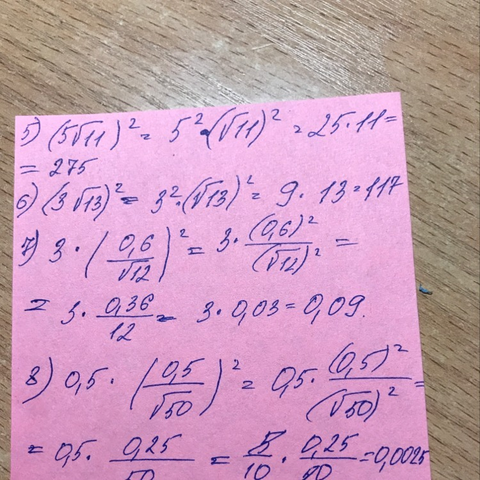 5) (5√11)² = 5²·(√11)² = 25·11=
= 275
6) (3√13)² = 3²·(√13)² = 9·13=117
7) 3·(0,6/√12)² = 3·(0,6)²/(√12)² =
= 3·0,36/12 = 3·0,03=0,09.
8) 0,5·(0,5/√50)² = 0,5·(0,5)²/(√50)² =
= 0,5·0,25/50 = 5/10·0,25/50=0,0025